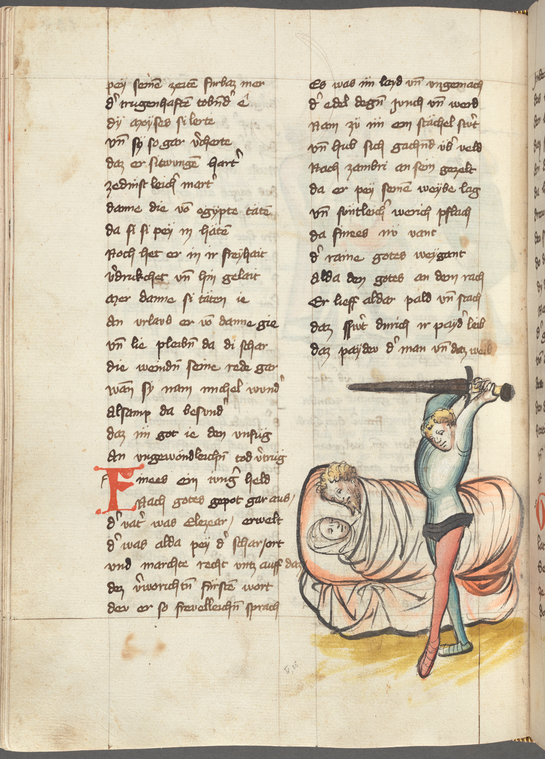 pey seinē zeitē furbaz mer
d' trugenhaftē tobnd' e
dy
vn̄ sy so gar v'herte
daz er si twungē hart'
zedinst leich mart'
danne die vō egypte tatē
da si si pey in hatē
Noch het er in ir freyhait
v'druckhet vn̄ hin gelait
mer danne si taten ie
An urlaub er vō danne gie
vn̄ lie pleibn̄ da di schar
die wendn̄ seine rede gar
wan sy nam michel wund'
Alsamp da besund'
daz im got ie den unfug
An ungewondleichn̄ tod v'trug
Finees ein iung' held
Nach gotes gepot gar aus
d' vat' was Eleazar / erwelt
d' was alda pey d' schar / ort
und marchte recht untz auf daz
dez v'worichtn̄ furstē wort
der er so frevelleichn̄ sprach
Es was im layd vn̄ ungemach
d' edel degn̄ junch vn̄ werd
Nam zu im ein stachel swt
vn̄ hub sich gachnd ub' veld
Nach zambri an sein gezelt
da er pey seinē weybe lag
vn̄ suntleich' werich pflach
da finees in vant
d' raine gotes weygant
Alda den gotes an dem rach
Er lieff aldar pald vn̄ stach
daz swt durich ir payd' leib
daz payder d' man vn̄ daz weib